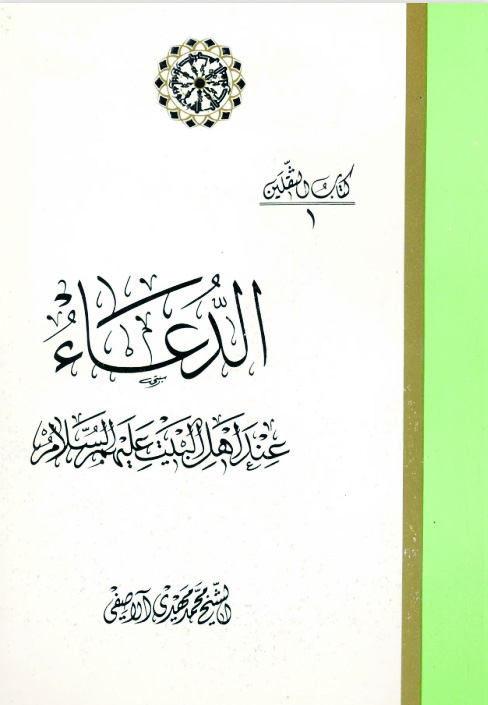 كتاب الثقلين
١
الدُّعَاءُ
عِنْدَ أَهْلِ الْبَيْتِ عَلَيْهِمُ السَّلَامُ
الشيخ محمد مهدي الآصفي